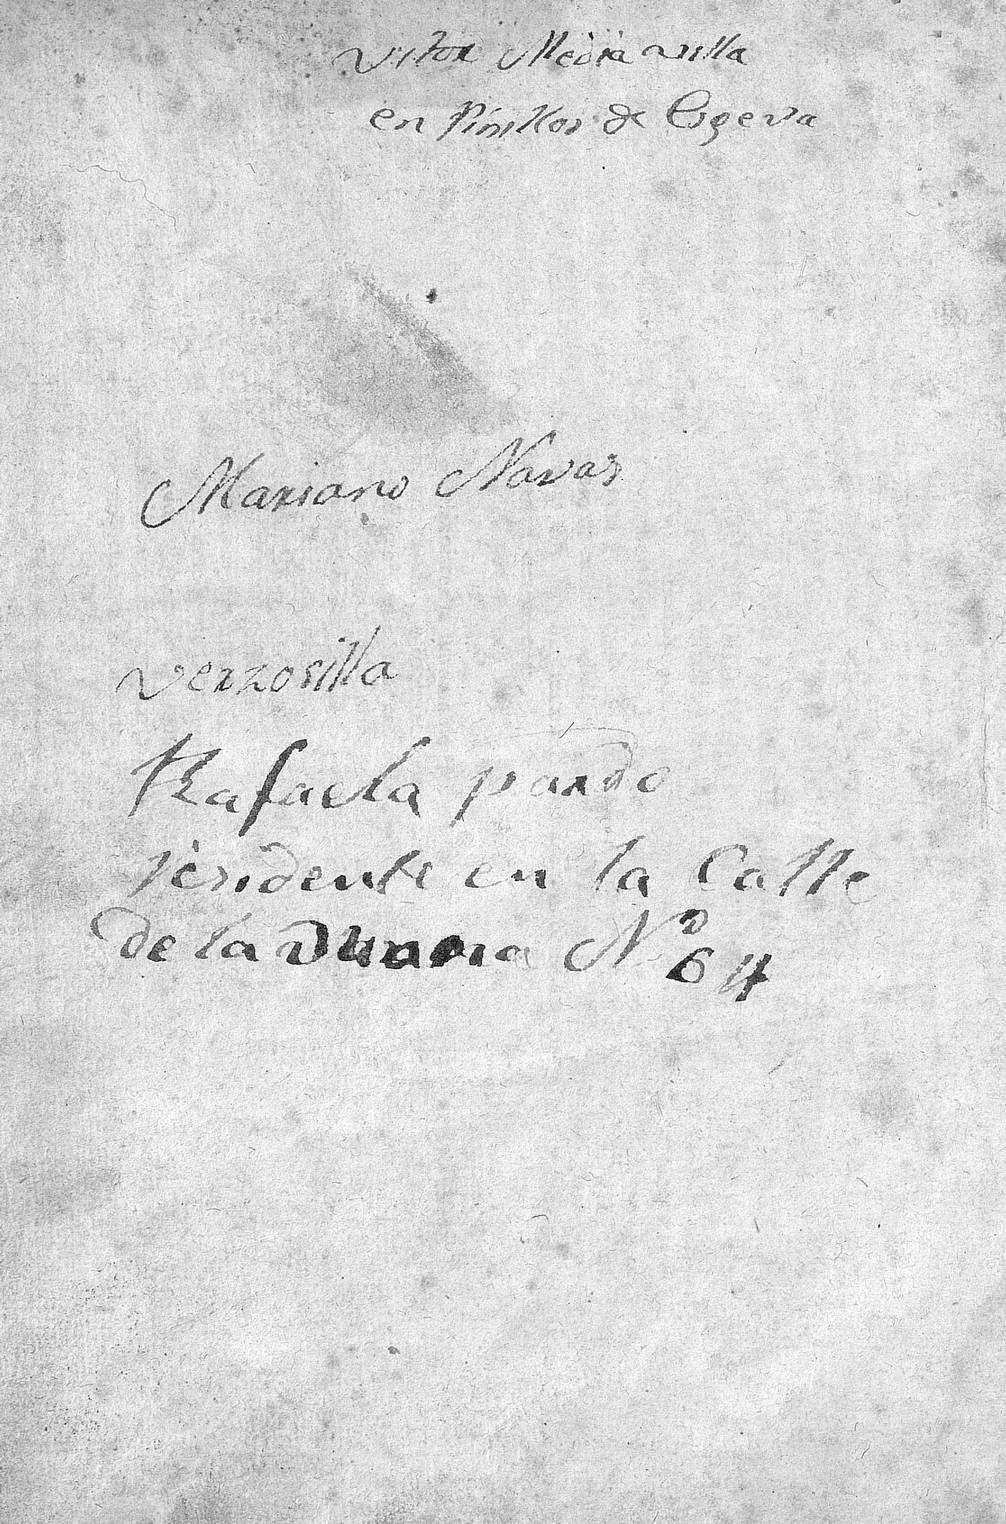 Vitor Media villa
en Pinillos de Esgeva
Mariano Navas
Verzosilla
Rafaela pardo
residente en la Calle
de la Nº 64